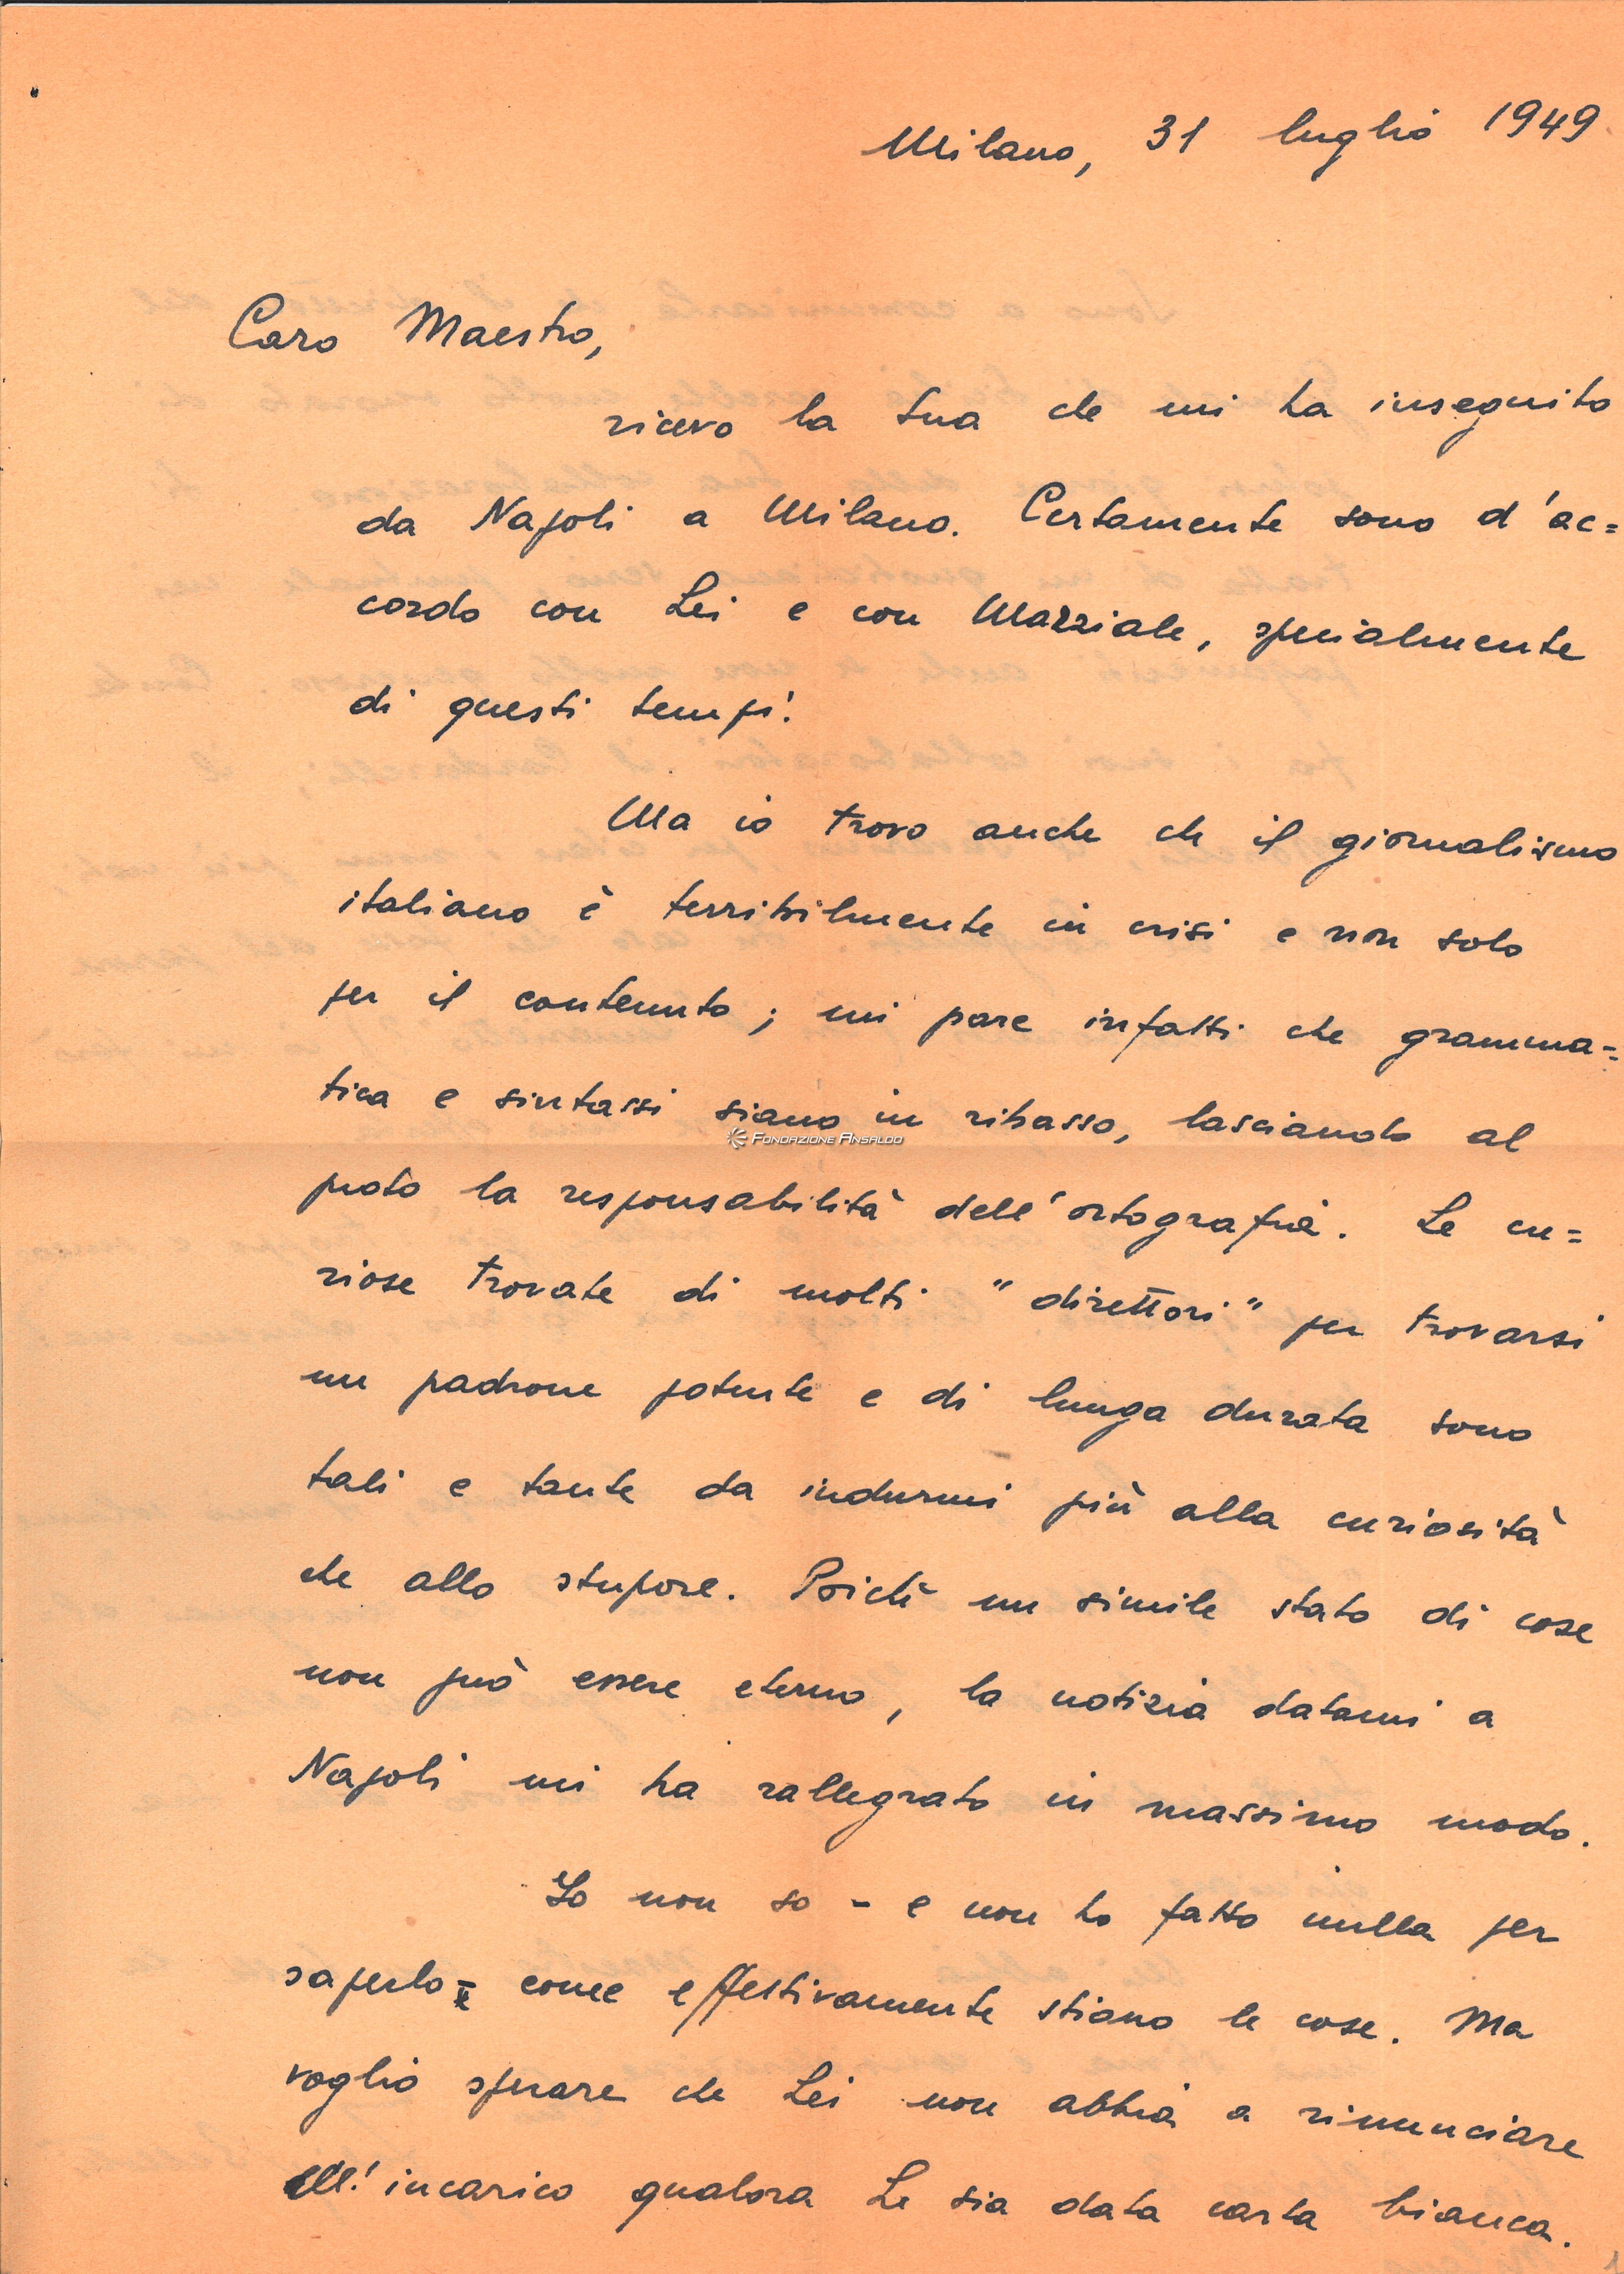 Milano, 31 luglio 1949
Caro Maestro,
ricevo la Sua che mi ha inseguito
da Napoli a Milano. Certamente sono d'ac=
cordo con Lei e con Marziale, specialmente
di questi tempi!
Ma io trovo anche che il giornalismo
italiano è terribilmente in crisi e non solo
per il contenuto; mi pare infatti che gramma=
tica e sintassi siano in ribasso, lasciando al
proto la responsabilità dell'ortografia. Le cu=
riose trovate di molti "direttori" per trovarsi
un padrone potente e di lunga durata sono
tali e tante da indurmi più alla curiosità
che allo stupore. Poichè un simile stato di cose
non può essere eterno, la notizia datami a
Napoli mi ha rallegrato in massimo modo.
Io non so - e non ho fatto nulla per
saperlo - come effettivamente stiano le cose. Ma
voglio sperare che Lei non abbia a rinunciare
all'incarico qualora Le sia data carta bianca.
Fondazione Ansaldo
1